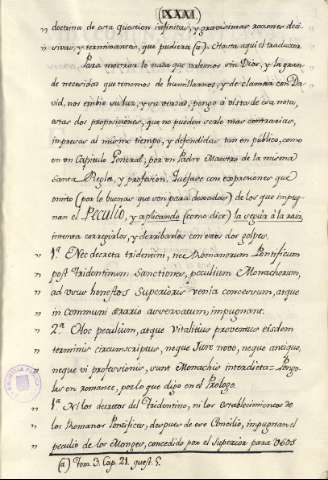 (XXXI)
doctrina de esta question infinitas, y gravisimas razones deci-
sivas, y terminantes, que pudiera (a). Hasta aqui el traductor.
Para mostrar lo nada que valemos sin Dios, y la gran-
de necesidad que tenemos de humillarnos, y de clamar con Da-
vid, nos embie su luz, y su verdad, pongo á vista de esta nota,
estas dos proposiciones, que no pueden serlo mas contrarias,
impresas al mismo tiempo, y defendidas tan en público, como
en un Capitulo General, por un Padre Maestro de la misma
Santa Regla, y profesion. Quéjase con expresiones que
siento (por lo buenas que son para de los que impug-
nan el Peculio, y aplicando (como dice) la segur á la raiz
intenta corregirlos, y derribarlos con estos dos golpes.
" 1.ª Nec decreta tridentini, nec Romanorum Pontificum
" post tridentinum Sanctiones, peculium Monachorum,
" ad usus honestos Superioris venia concessum, atque
" in communi ærario asservatum, impugnant.
" 2.ª Hoc peculium, atque Vitalitius proventus eisdem
" terminis circumscriptus, neque Jure novo, neque antiquo,
" neque vi professionis, sunt Monachis interdicta. Pongo-
las en romance, por lo que digo en el Prologo.
" 1.ª Ni los decretos del Tridentino, ni los establecimientos de
" los Romanos Pontifices, despues de este Concilio, impugnan el
" peculio de los Monges, concedido por el Superior para usos
(a) Tom. 3. Cap. 21. quest. 5.